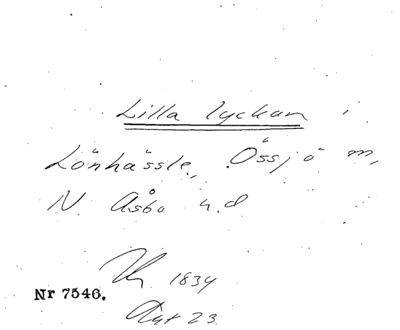 Lilla lyckan i
Lönhässle, Össjö m,
N. Åsbo h.d
1834
Nr 7546.
23